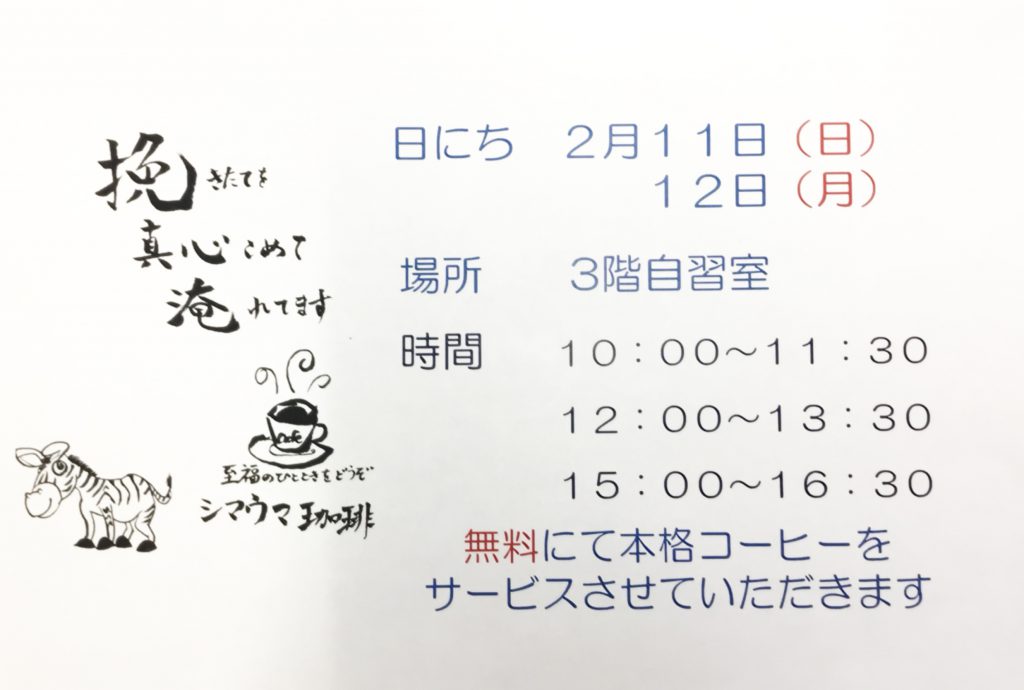 挽きたてを
真心こめて
淹れてます
Cafe
至福のひとときをどうぞ
シマウマ珈琲
日にち　２月１１日（日）
１２日（月）
場所　３階自習室
時間　１０：００～１１：３０
１２：００～１３：３０
１５：００～１６：３０
無料にて本格コーヒーを
サービスさせていただきます